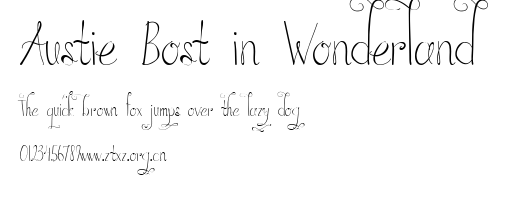 Austie Bost in Wonderland
The quick brown fox jumps over the lazy dog
0123456789www.ztxz.org.cn